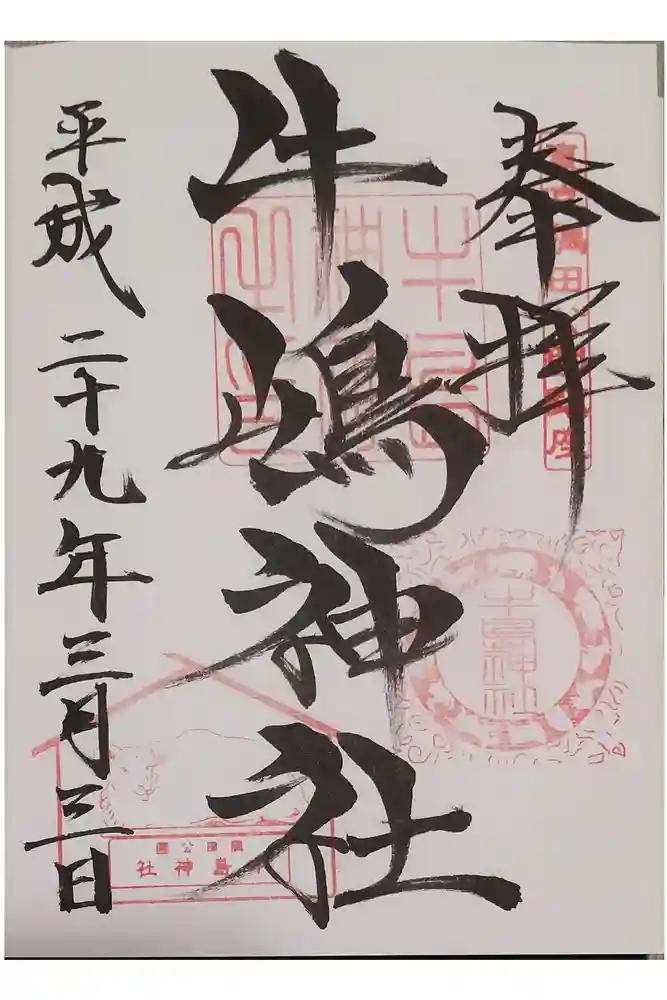 奉拝
牛嶋神社
平成二十九年三月三日
牛嶋神社
隅田公園
牛島神社